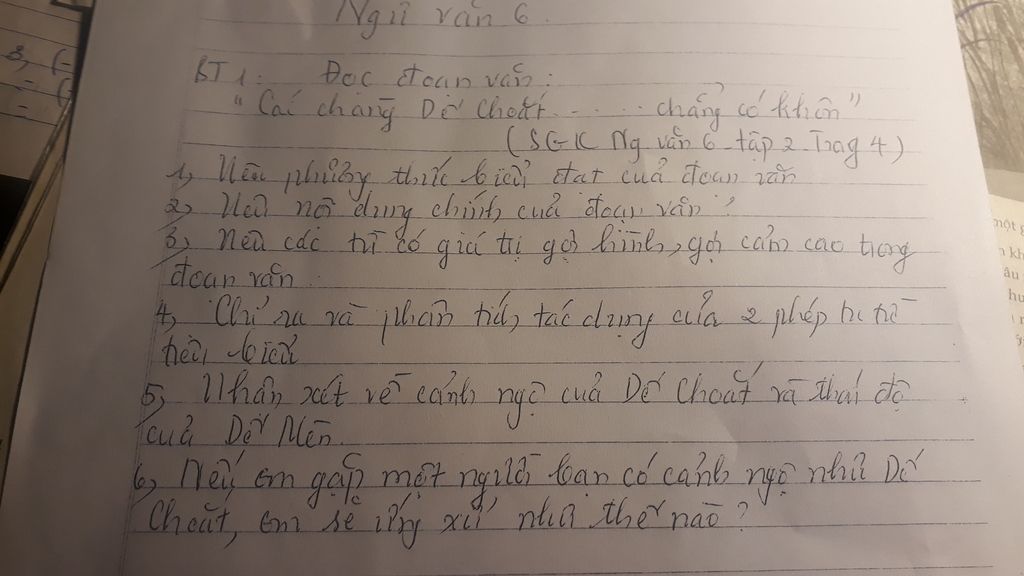 Ngữ văn 6.
BT1: Đọc đoạn văn:
"Cái chàng Dế Choắt ..... chẳng có khôn"
(SGK Ng văn 6 tập 2 Trag 4)
1, Nêu phương thức biểu đạt của đoạn văn
2, Nêu nội dung chính của đoạn văn?
3, Nêu các từ có giá trị gợi hình, gợi cảm cao trong
đoạn văn.
4, Chỉ ra và phân tích tác dụng của 2 phép tu từ
tiêu biểu
5, Nhận xét về cảnh ngộ của Dế Choắt và thái độ
của Dế Mèn.
6, Nếu em gặp một người bạn có cảnh ngộ như Dế
Choắt, em sẽ ứng xử như thế nào?
3, (-
= (
=
một g